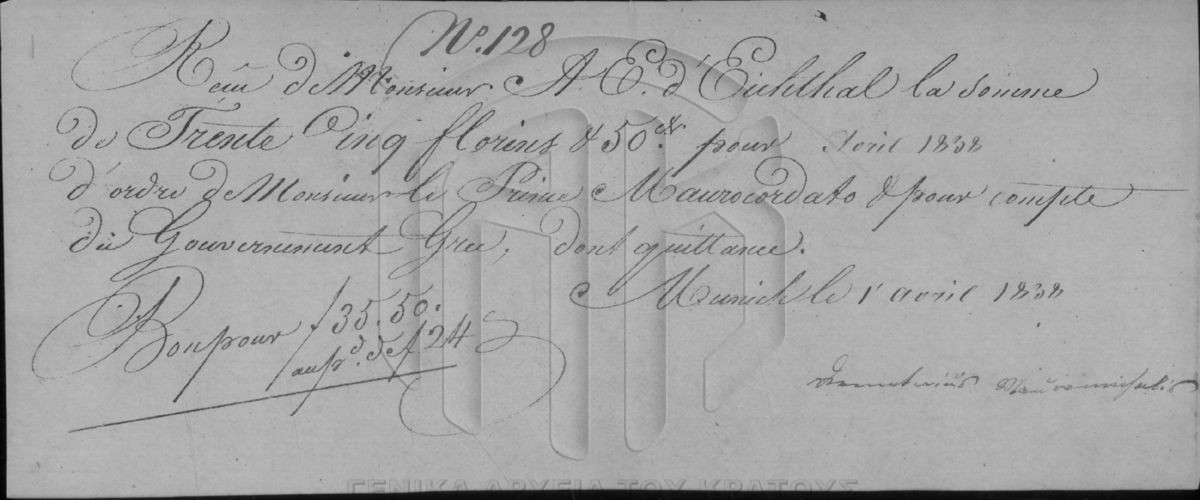 No. 128
Recû de Monsieur A. E. d'Eichthal la somme
de Trente Cinq florins & 50 xr. pour Avril 1838
d'ordre de Monsieur le Prince Maurocordato & pour compte
du Gouvernement Grec, dont quittance.
Munich le 1 avril 1838
Bon pour f 35.50.
au pr. de f 24
Demetrius Mauromichalis
ΓΕΝΙΚΑ ΑΡΧΕΙΑ ΤΟΥ ΚΡΑΤΟΥΣ